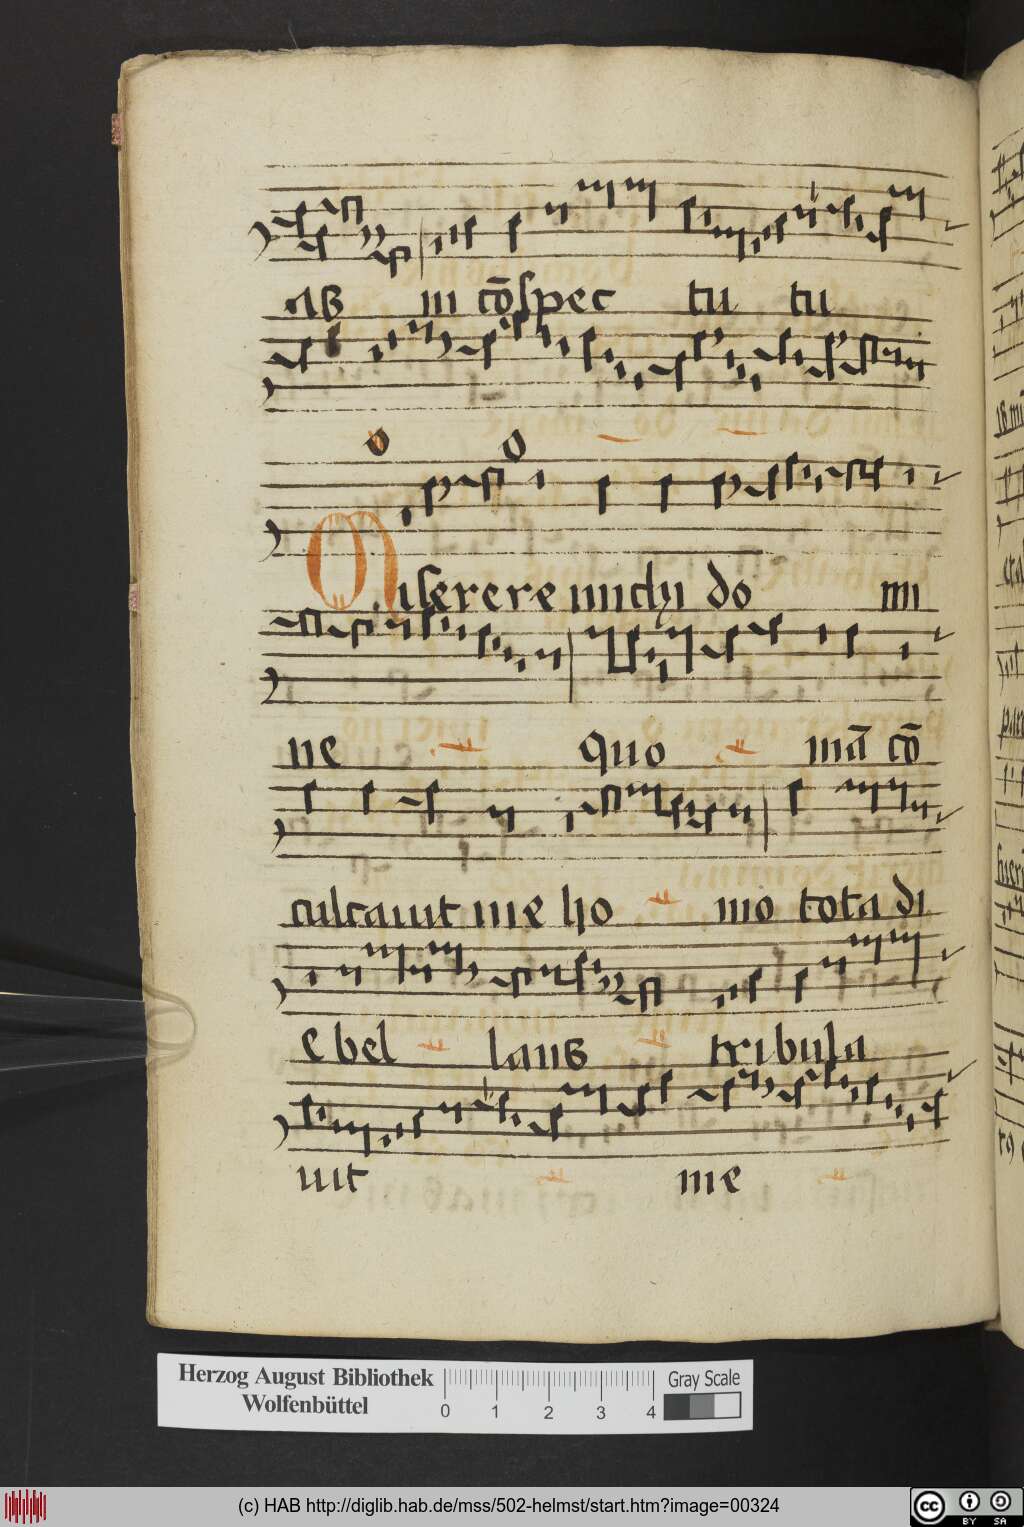 as in cōspec tu tu
o o
Miserere michi do mi
ne quo mā cō
culcauit me ho mo tota di
e bel lans tribula
uit me
Herzog August Bibliothek
Wolfenbüttel
0 1 2 3 4
Gray Scale
(c) HAB http://diglib.hab.de/mss/502-helmst/start.htm?image=00324
cc BY SA